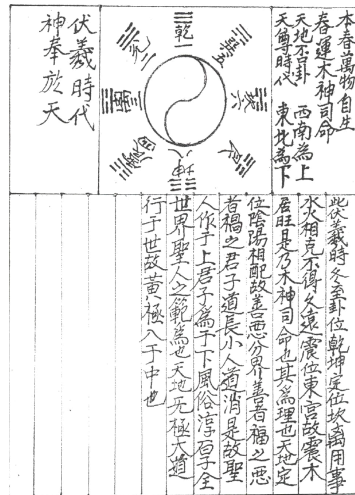 本春萬物自生
春運木神司命
天地否卦　西南為上
天尊時代　東北為下
乾一
兌二
離三
震四
巽五
坎六
艮
坤
伏羲時代
神奉於天
此伏羲時冬至卦位乾坤定位坎离用事
水火相克不得久遠震位東宮故震木
居旺是乃木神司命也其為理也天地定
位陰陽相配故善惡分界善者福之惡
者禍之君子道長小人道消是故聖
人作于上君子為于下風俗淳百子全
世界聖人之範為也天地无極大道
行于世故黃極八于中也